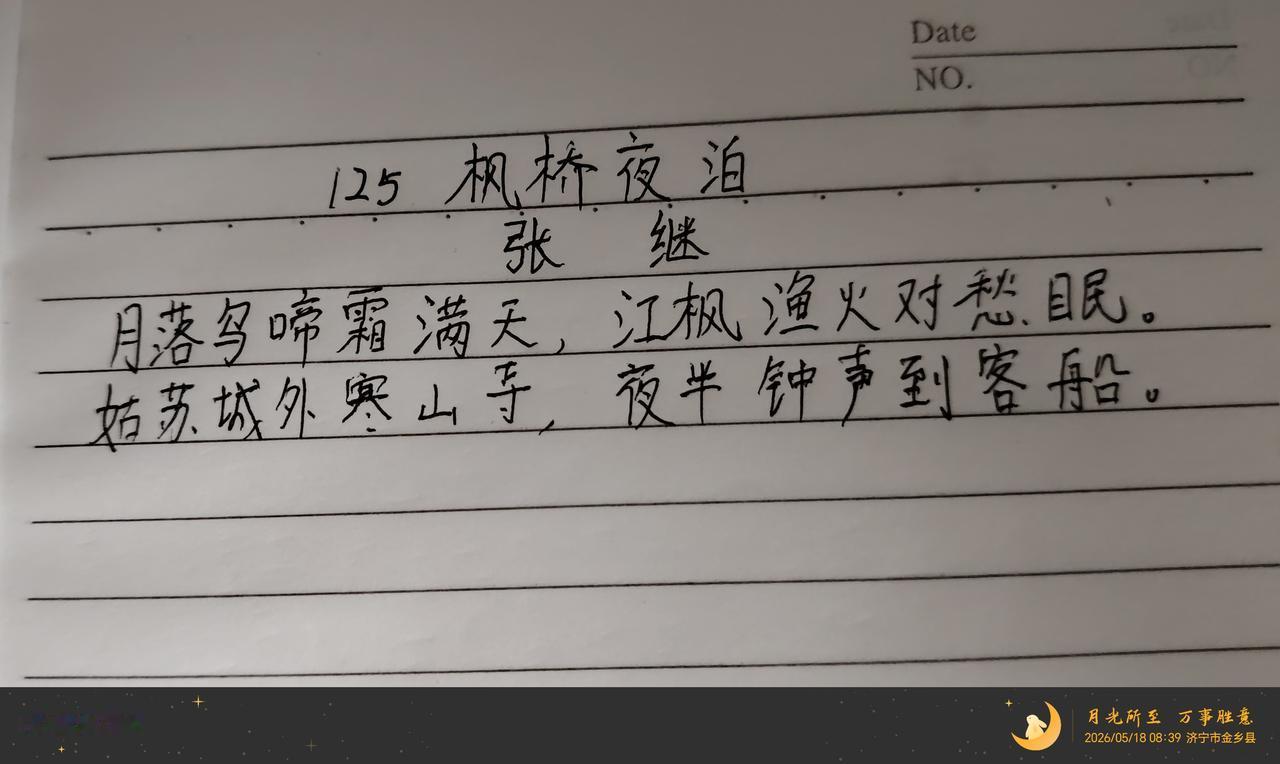 Date
NO.
125 枫桥夜泊
张 继
月落乌啼霜满天，江枫渔火对愁眠。
姑苏城外寒山寺，夜半钟声到客船。
月光所至 万事胜意
2026/05/18 08:39 济宁市金乡县